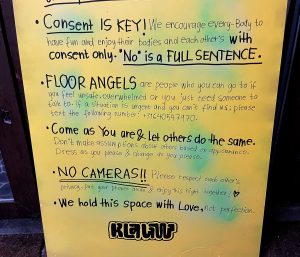 • Consent IS KEY! We encourage every-Body to
have fun and enjoy their bodies and each other's with
consent only. "No" is a FULL SENTENCE.
• FLOOR ANGELS are people who you can go if
you feel unsafe, overwhelmed or you just need someone to
talk to. If a situation is urgent and you can't find us, please
text the following number:
• Come as You are & let others do the same.
Don't make assumptions about others based on appearance.
Dress as you please & change as you please.
• NO CAMERAS!! Please respect each other's
privacy, put your phones away & enjoy this night together! ♡
• We hold this space with Love, not perfection.
KLAUW